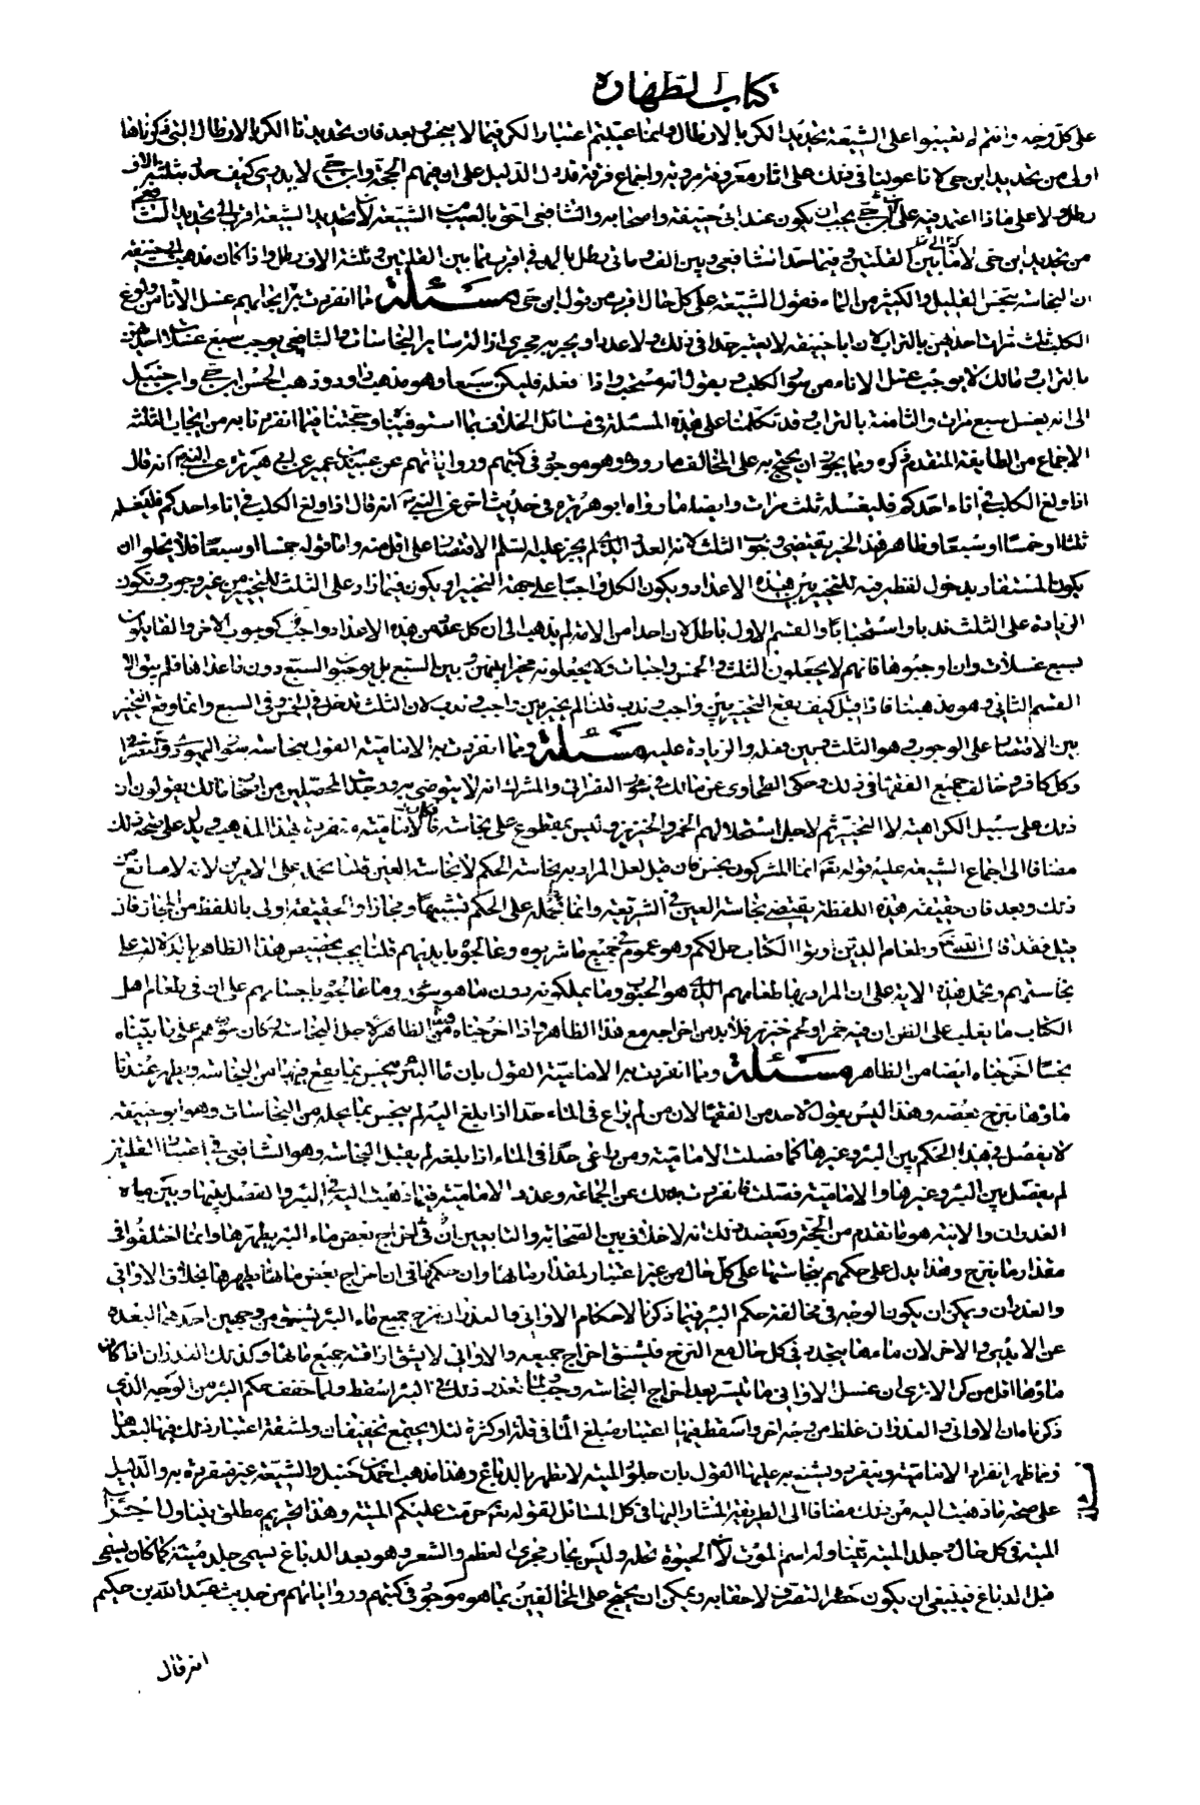 كتاب الطهارة
على كل وجه وانتم لم تغيبوا على الشيعة تحديد الكر بالارطال وانما عيبتم اعتبار الكر فيما لا ينجس وبعد فان تحديدنا الكر بالارطال التى ذكرناها
اولى من تحديد ابن حى لانا عولنا فى ذلك على اثار معروفة مروية واجماع فرقة قد دل الدليل على ان فيهم الحجة وابن حى لا يدرى كيف حد بثلثة الاف
رطل ولا على ماذا اعتمد فيه على انه يجب ان يكون عند ابى حنيفة واصحابه والشافعى احق بالعيب من الشيعة لان تحديد الشيعة اقرب الى تحديد الشافعى
من تحديد ابن حى لان ما بين القلتين وفيما حد الشافعى وبين الف ومائى رطل بالمدنى اقرب مما بين القلتين وثلثة الاف رطل واذا كان مذهب ابى حنيفة
ان النجاسة تنجس القليل والكثير من الماء فقول الشيعة على كل حال اقرب من قول ابن حى مسئلة مما انفردت به الامامية ايجابهم غسل الاناء من ولوغ
الكلب ثلث مرات احديهن بالتراب لان ابا حنيفة لا يعتبر حدا فى ذلك ولا عددا ويجريه مجرى ازالة سائر النجاسات والشافعى يوجب سبع غسلات احديهن
بالتراب ومالك لا يوجب غسل الاناء من سؤر الكلب ويقول انه مستحب واذا فعله فليكن سبعا وهو مذهب داود وذهب الحسن ابن حى وابن حنبل
الى انه يغسل سبع مرات والثامنة بالتراب وقد تكلمنا على هذه المسئلة فى مسائل الخلاف بما استوفيناه وحجتنا فيما انفردنا به من ايجاب الثلثة
الاجماع من الطايفة المتقدم ذكره ومما يجوز ان يحتج به على المخالف ما رووه وهو موجود فى كتبهم ورواياتهم عن عبيد بن عمير عن ابى هريرة عن النبى انه قال
اذا ولغ الكلب فى اناء احدكم فليغسله ثلث مرات وايضا ما رواه ابو هريرة فى حديث اخر عن النبى انه قال اذا ولغ الكلب فى اناء احدكم فليغسله
ثلثا او خمسا او سبعا وظاهر هذا الخبر يقتضى وجوب الثلث لانه العدد الذى لم يجز عليه السلم الاقتصار على اقل منه واما قوله خمسا او سبعا فلا يخلو ان
يكون المستفاد بدخول لفظه فيه للتخيير بين هذه الاعداد ويكون الكل واجبا على جهة التخيير او يكون فيما زاد على الثلث للتخيير من غير وجوب وتكون
الزيادة على الثلث ندبا واستحبابا والقسم الاول باطل لان احدا من الامة لم يذهب الى ان كل عدد من هذه الاعداد واجب كوجوب الاخر والقائلون
بسبع غسلات وان اوجبوها فانهم لا يجعلون الثلث والخمس واجبات ولا يجعلونه مخيرا بينهن وبين السبع بل يوجبوا السبع دون ما عداها فلم يبق الا
القسم الثانى وهو مذهبنا فاذا قيل كيف يقع التخيير بين واجب وندب قلنا لم يخير بين واجب وندب لان الثلث تدخل فى الخمس وفى السبع وانما وقع التخيير
بين الاقتصار على الوجوب وهو الثلث وبين فعله والزيادة عليه مسئلة ومما انفردت به الامامية القول بنجاسة سؤر اليهودى والنصرانى
وكل كافر وخالف جميع الفقهاء فى ذلك وحكى الطحاوى عن مالك فى سؤر النصرانى والمشرك انه لا يتوضى به ووجدت المحصلين من اصحاب مالك يقولون ان
ذلك على سبيل الكراهية لا التحريم لاجل استحلالهم الخمر والخنزير وليس بمقطوع على نجاسته فكان الامامية متفردة بهذا المذهب ويدل على صحة ذلك
مضافا الى اجماع الشيعة عليه قوله تعالى انما المشركون نجس فان قيل لعل المراد به نجاسة الحكم لا نجاسة العين قلنا نحمله على الامرين لانه لا مانع من
ذلك وبعد فان حقيقة هذه اللفظة يقتضى نجاسة العين فى الشريعة وانما تحمله على الحكم تشبيها ومجازا والحقيقة اولى باللفظ من المجاز فان
قيل فقد قال الله تعالى وطعام الذين اوتوا الكتاب حل لكم وهو عموم فى جميع ما شربوه وعالجوه بايديهم قلنا يجب تخصيص هذا الظاهر بالدلالة على
نجاستهم ونحمل هذه الاية على ان المراد بها طعامهم الذى هو الحبوب وما يملكونه دون ما هو سؤر وما عالجوه باجسامهم على ان فى طعام اهل
الكتاب ما يغلب على الظن ان فيه خمرا ولحم خنزير فلا بد من اخراجه مع هذا الظاهر واذا اخرجناه من الظاهر لاجل النجاسة وكان سؤرهم على ما بيناه
نجسا اخرجناه ايضا من الظاهر مسئلة ومما انفردت به الامامية القول بان ماء البئر ينجس بما يقع فيها من النجاسة ويطهر عندنا
ماؤها بنزح بعضه وهذا ليس بقول لاحد من الفقهاء لان من لم يراع فى الماء حدا اذا بلغ اليه لم ينجس بما يحله من النجاسات وهو ابو حنيفة
لا يفصل فى هذا الحكم بين البئر وغيرها كما فصلت الامامية ومن راعى حدا فى الماء اذا بلغه لم يقبل النجاسة وهو الشافعى فى اعتبار القلتين
لم يفصل بين البئر وغيرها والامامية فصلت فانفردت بذلك عن الجماعة وعذر الامامية فيما ذهبت اليه فى البئر والفصل بينها وبين مياه
الغدران والانية هو ما تقدم من الحجة ويعضد ذلك انه لا خلاف بين الصحابة والتابعين فى ان اخراج بعض ماء البئر يطهرها وانما اختلفوا فى
مقدار ما ينزح وهذا يدل على حكمهم بنجاستها على كل حال من غير اعتبار لمقدار مائها وان حكمها فى ان اخراج بعض مائها يطهرها بخلاف الاوانى
والغدران ويمكن ان يكون الوجه فى مخالفة حكم البئر فيما ذكرنا لاحكام الاوانى والغدران نزح جميع ماء البئر يشق من وجهين احدهما لبعده
عن الايدى والاخر لان ماءها يتجدد فى كل حال مع النزح فليشق اخراج جميعه والاوانى لا يشق اراقة جميع مائها وكذلك الغدران اذا كان
ماؤها اقل من كر الا ترى ان غسل الاوانى لما تيسر بعد اخراج النجاسة وجب ولما تعذر ذلك فى البئر اسقط ولما خفف حكم البئر من الوجه الذى
ذكرناه ان الاوانى والغدران غلظ من وجه اخر واسقط فيها اعتبار مبلغ الماء فى قلة او كثرة لئلا يجتمع تخفيفان ولمشقة اعتبار ذلك فيها لبعدها
ومما ظهر انفراد الامامية وينفرد ويشنع به عليها القول بان جلود الميتة لا تطهر بالدباغ وهذا مذهب احمد بن حنبل والشيعة غير منفردة به والدليل
على صحة ما ذهبت اليه من ذلك مضافا الى الطريقة المشار اليها فى كل المسائل لقوله تعالى حرمت عليكم الميتة وهذا تحريم مطلق يتناول اجزاء
الميتة فى كل حال وجلد الميتة يتناوله اسم الموت لان الحيوة تحله وليس بجار مجرى العظم والشعر وهو بعد الدباغ يسمى جلد ميتة كما كان يسمى
قبل الدباغ فينبغى ان يكون حظر التصرف لاحقا به ويمكن ان يحتج على المخالفين بما هو موجود فى كتبهم ورواياتهم من حديث عبد الله بن حكيم
انه قال